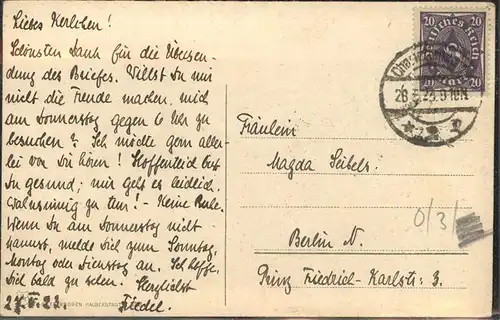 Liebes Kerlchen!
Schönsten Dank für die Übersen-
dung des Briefes. Willst Du mir
nicht die Freude machen, mich
am Donnerstag gegen 6 Uhr zu
besuchen? Ich möchte gern aller-
lei von Dir hören! Hoffentlich bist
Du gesund; mir geht es leidlich.
Wahnsinnig zu tun! - Keine Ruhe.
Wenn Du am Donnerstag nicht
kannst, melde Dich zum Sonntag,
Montag oder Dienstag an. Ich hoffe,
Dich bald zu sehen. Herzlichst
Friedel.
HALBERSTADT
20 20
Deutsches Reich
20 Mark 20
Fräulein
Magda Seibels.
Berlin N.
Prinz Friedrich-Karlstr. 3.
0/3/